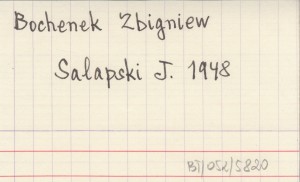 Bochenek Zbigniew
Sałapski J. 1948
BT/052/5820